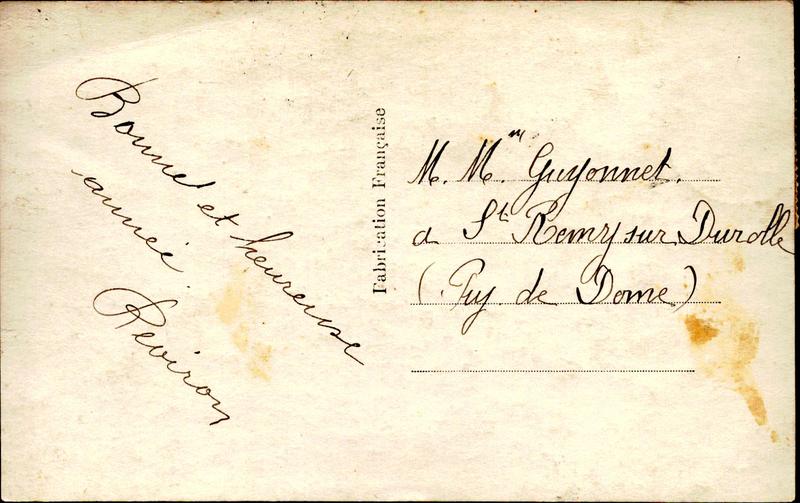 Bonne et heureuse
année
Peviron
Fabrication Française
M. Mᵐ Guyonnet.
a St Remy sur Durolle
(Puy de Dome)